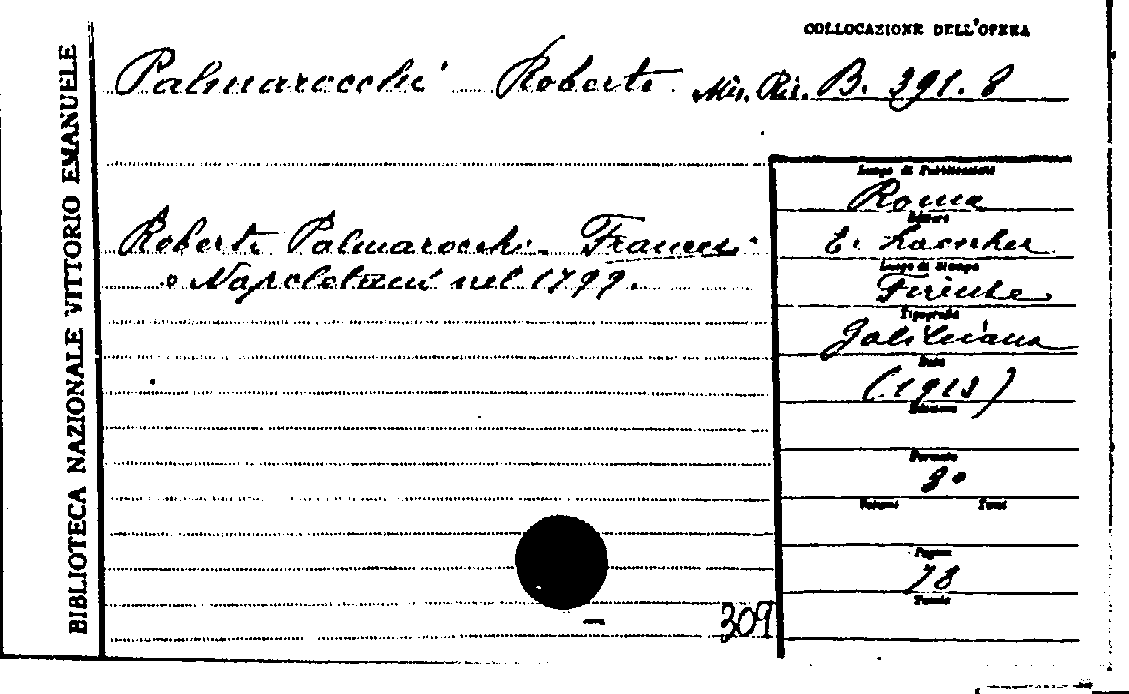 COLLOCAZIONE DELL'OPERA
Palmarocchi Roberto Mis. Ris. B. 391. 8
BIBLIOTECA NAZIONALE VITTORIO EMANUELE
Roberto Palmarocchi. Francesi
e Napoletani nel 1799.
Luogo di Pubblicazione
Roma
Editore
E. Loescher
Luogo di Stampa
Firenze
Tipografia
Galileiana
Data
(1913)
Edizione
Formato
8°
Volumi Tomi
Pagine
78
Tavole
309